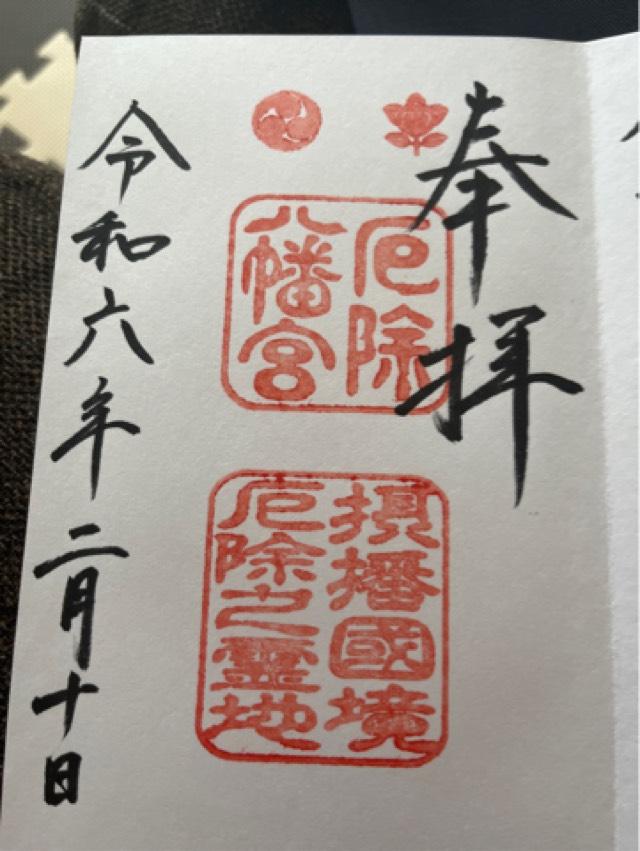 奉拝
厄除
八幡宮
摂播國境
厄除之霊地
令和六年二月十日